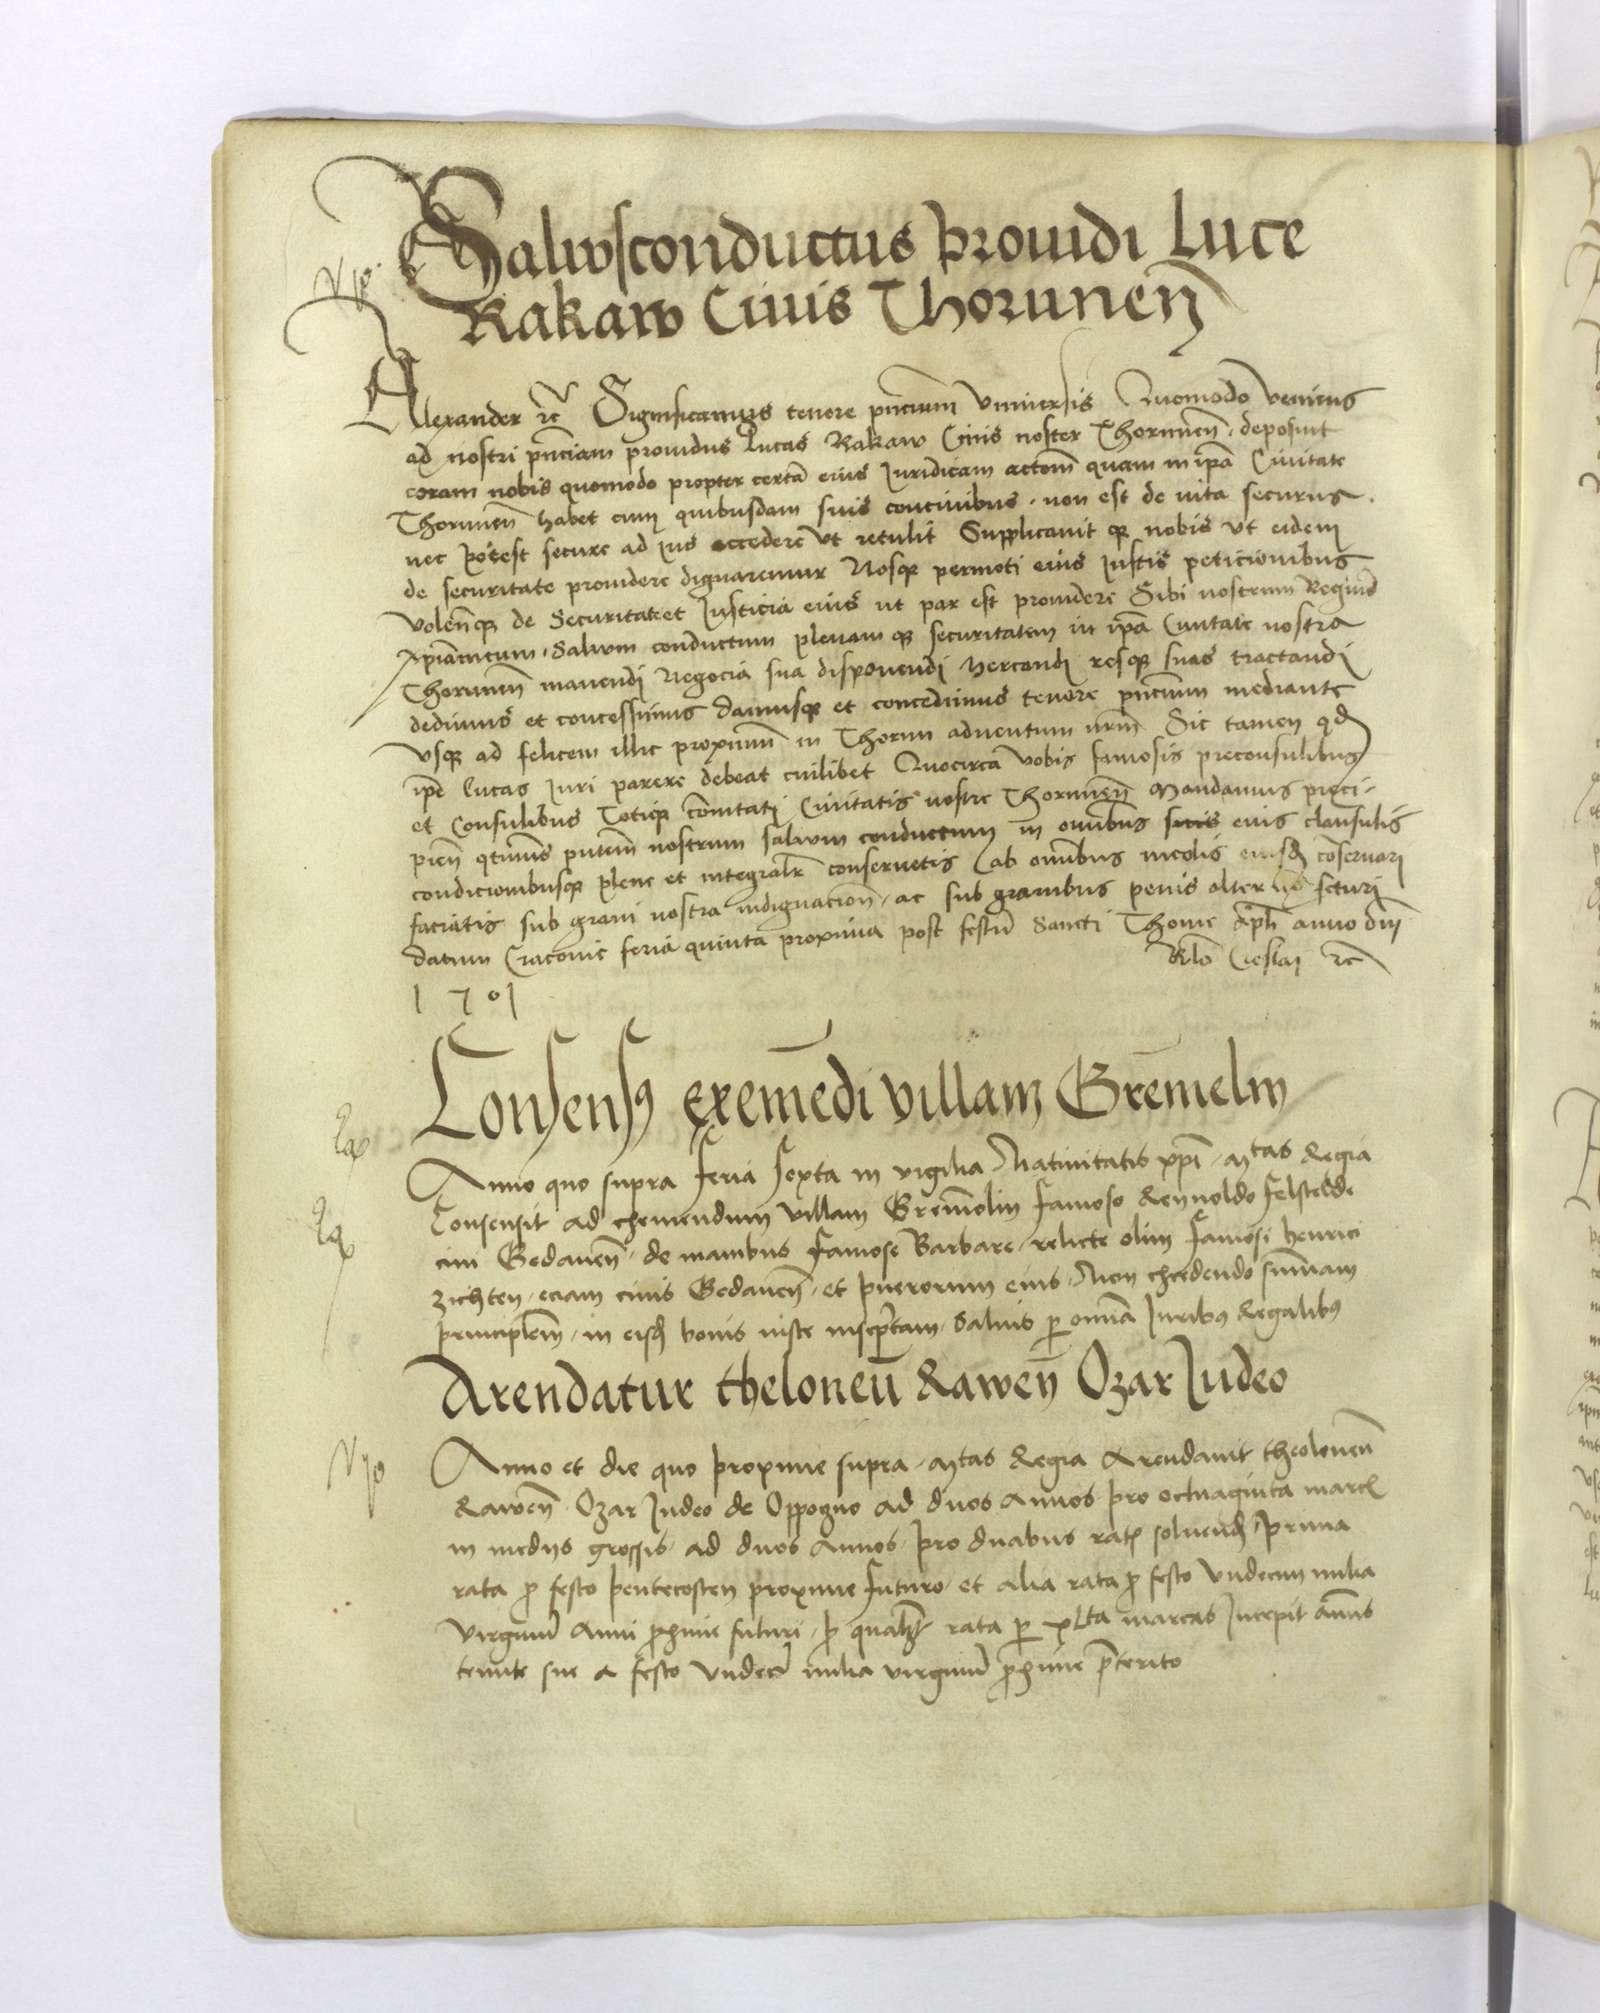 Salwsconductus prouidi Luce
Rakaw Ciuis Thorunen
Alexander rc Significamus tenore pncium Vniuersis Quomodo veniens
ad nostri pnciam prouidus Lucas Rakaw Ciuis noster Thorunen deposuit
coram nobis quomodo propter certa eius Iuridicam actom quam in ipa Ciuitate
Thorunen habet cum quibusdam suis conciuibus non est de uita securus
nec potest secure ad ius accedere vt retulit Supplicauit qz nobis vt eidem
de securitate prouidere dignaremur Nosqz permoti eius Iustis peticionibus
volenqz de Securitate et Iusticia eius ut par est prouidere Sibi nostrum Regiu
xpiancum Salwm conductum plenam qz securitatem in ipa Ciuitate nostra
Thorunen manendi Negocia sua disponendi Mercandi resqz suas tractandi
dedimus et concessimus damusqz et concedimus tenore pncium mediante
Vsqz ad felicem illic proximu in Thorun aduentum nrm Sic tamen qd
ipe Lucas Iuri parere debeat cuilibet Quocirca vobis famosis preconsulibus
et Consulibus Totiqz comitati Ciuitatis nostre Thorunen Mandamus preci-
pien qtinus putem nostrum saluum conductum in omibus suis eius clausulis
condicionibusqz plene et integralr conseruetis ab omibus incolis eiusd conseruari
faciatis sub graui nostra indignacion ac sub grauibus penis alter no fcturi
datum Cracouie feria quinta proxima post festu Sancti Thome Apli anno dni
1501 Rlo Cieslaij rc
Consensus exemedi villam Gremelin
Anno quo supra feria sexta in vigilia Natiuitatis xpi Mtas Regia
Consensit ad exemendum villam Gremolin famoso Reynoldo Felstedde
ciui Gedanen de manibus famose Barbare relicte olim famosi henrici
zichten eciam ciuis Gedanen et puerorum eius Non excedendo summam
principlem in eisd bonis iuste inscptam Saluis p omia Iuribus Regalibus
Arendatur theloneu Rawen Ozar Iudeo
Anno et die quo proxime supra Mtas Regia Arendauit theoloneu
Rawen Ozar Iudeo de Oppogno ad duos Annos pro octuaginta marc
in medys grossis ad duos Annos pro duabus rat soluend prima
rata p festo pentecosten proxime futuro et alia rata p festo Vndecim milia
Virginu Anni pxime futuri p qualzt rata p xLta marcas Incepit annus
tenute sue a festo Vndeci milia virginu pxime pterito